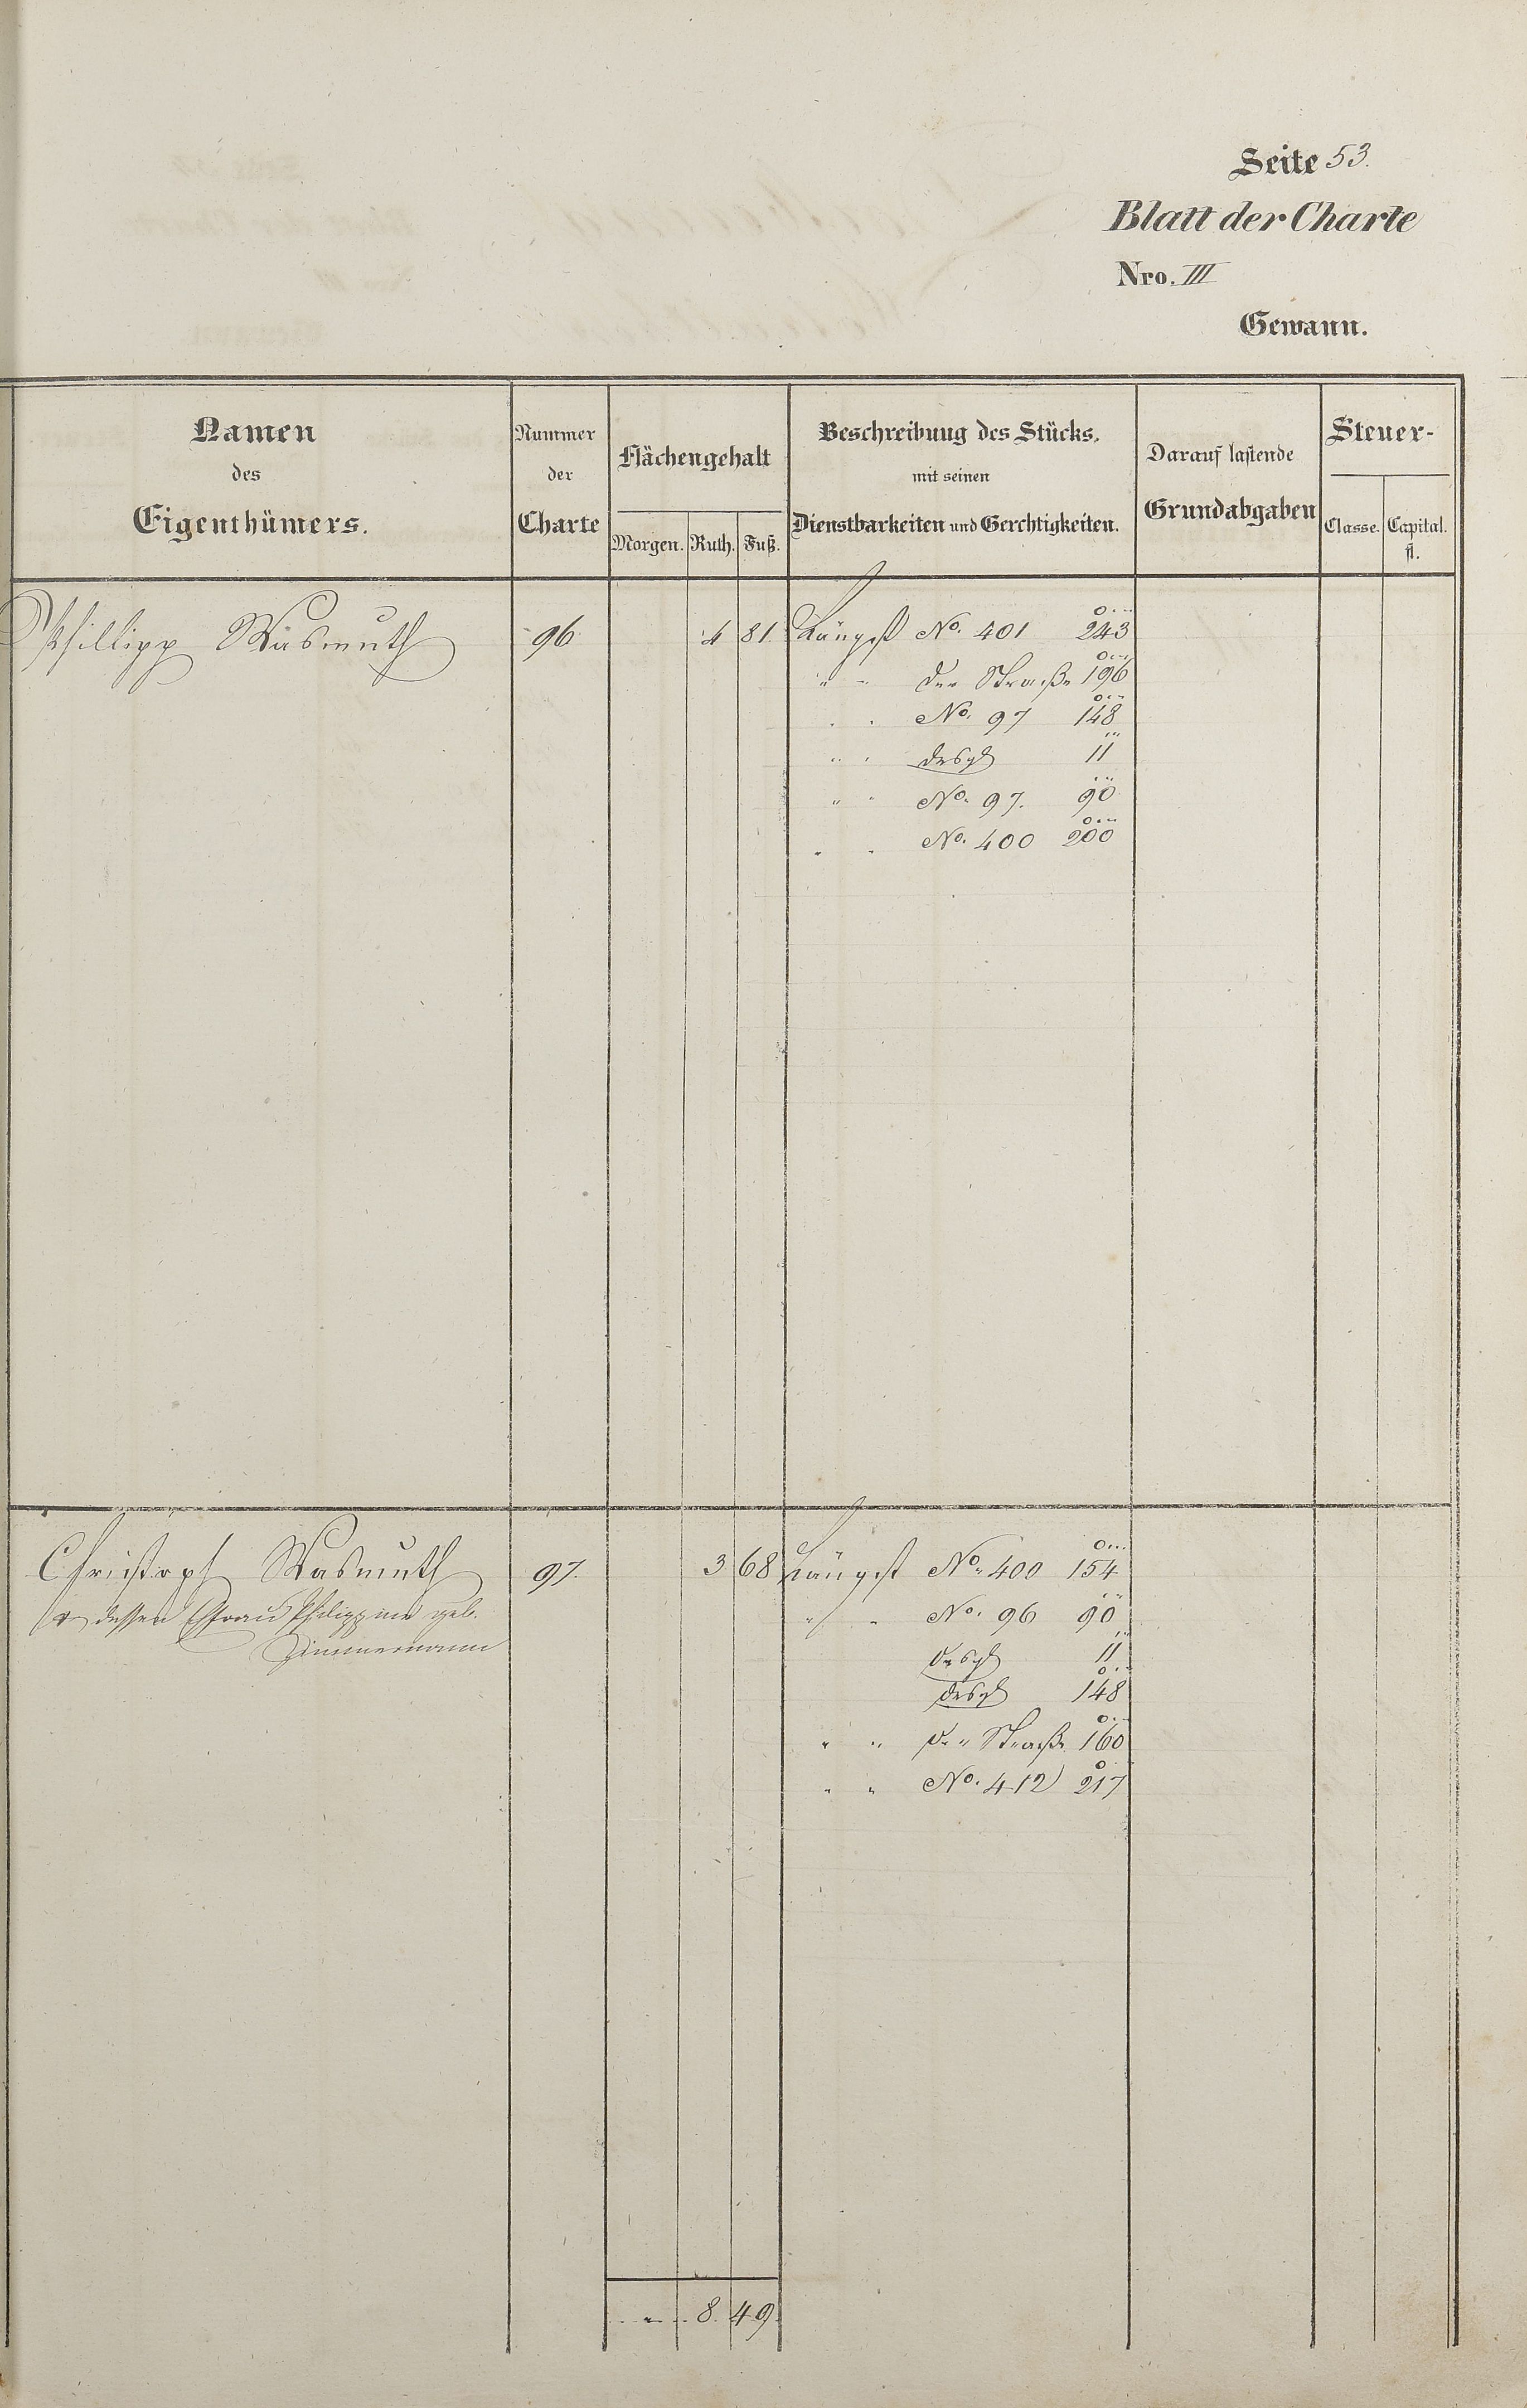 Seite 53.
Blatt der Charte
Nro. III
Gewann.
Namen
des
Eigenthümers.
Nummer
der
Charte
Flächengehalt
Morgen. Ruth. Fuß.
Beschreibung des Stücks,
mit seinen
Dienstbarkeiten und Gerchtigkeiten.
Darauf lastende
Grundabgaben
Steuer-
Classe. Capital.
fl.
Phillipp Wasmuth 96 4 81. Längst No. 401 243
" " der Straße 196
" " No. 97 148
" " desgl 11
" " No. 97. 90
" " No. 400 200
Christoph Wasmuth 97. 3 68 Längst No. 400 154
& dessen Ehfrau Philippine geb. " " No. 96 90
Zimmermann
desgl 11
desgl 148
" " der Straße 160
" " No. 412 217
" 8. 49.